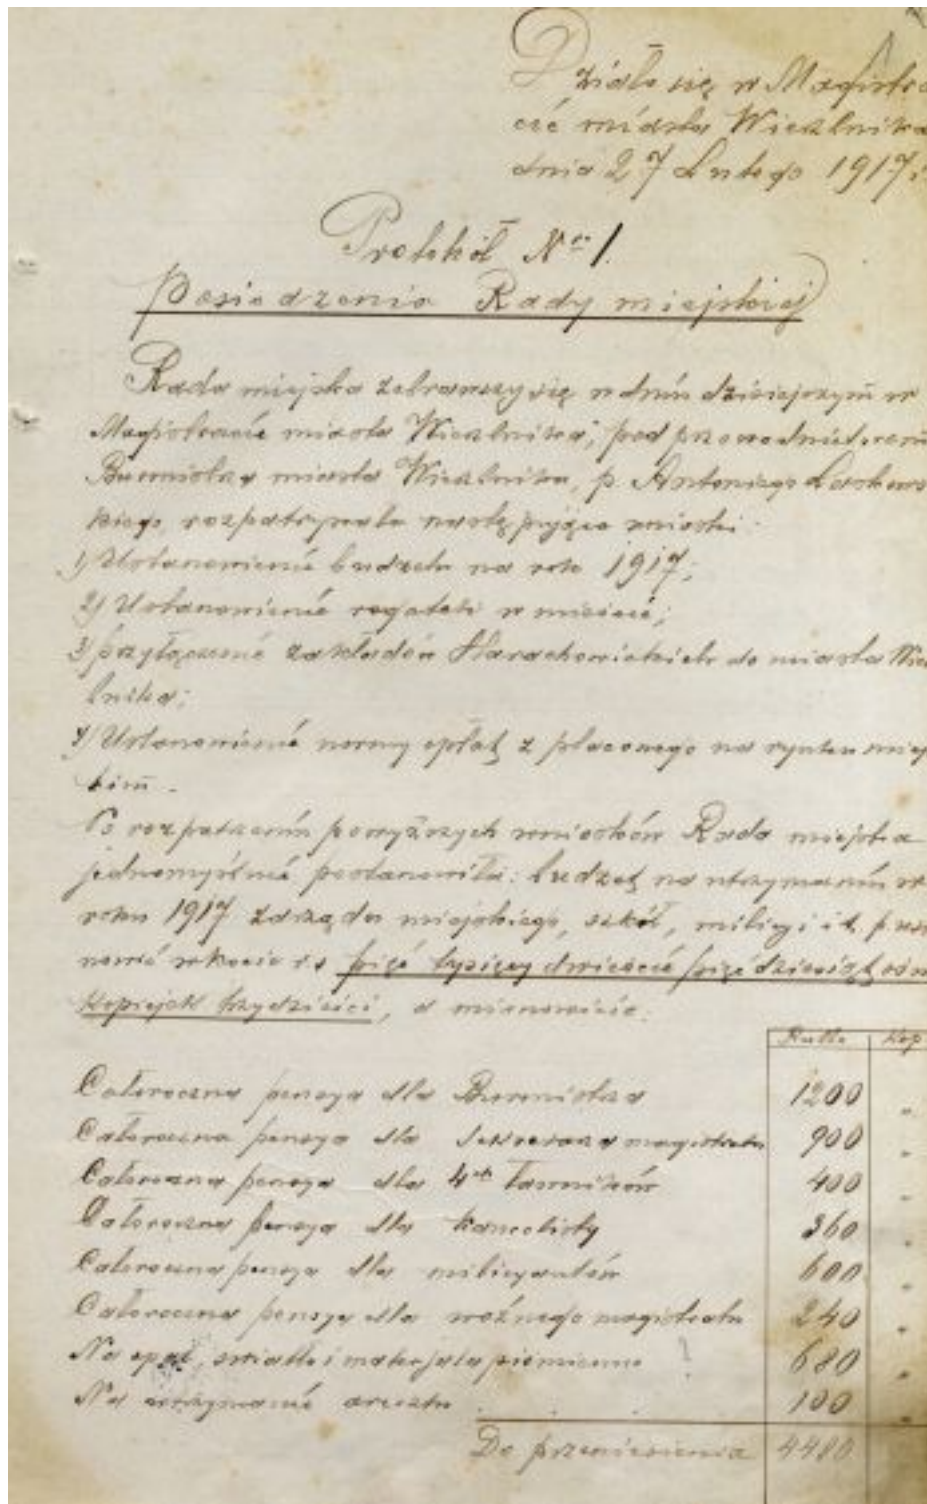 Działo się w Magistra
cie miasta Wierzbnika
dnia 27 Lutego 1917 r
Protokół No 1.
Posiedzenia Rady miejskiej
Rada miejska zebrawszy się w dniu dzisiejszym w
Magistracie miasta Wierzbnika, pod przewodnictwem
Burmistrza miasta Wierzbnika, p. Antoniego Laskows
kiego, rozpatrywała następujące wnioski:
1) Ustanowienie budżetu na rok 1917;
2) Ustanowienie rogatek w mieście;
3) przyłączenie zakładów Starachowickich do miasta Wie
bnika;
4) Ustanowienie normy opłat z placowego na rynku miej
skim.
Po rozpatrzeniu powyższych wniosków Rada miejska
jednomyślnie postanowiła: budżet na utrzymaniu w
roku 1917 zarządu miejskiego, szkół, milicyi i t. p. usta
nowić w kwocie rs pięć tysięcy dwieście pięćdziesiąt ośm
kopiejek trzydzieści, a mianowicie:
Ruble Kop
Całoroczna pensya dla Burmistrza 1200 "
Całoroczna pensya dla Sekretarza magistratu 900 "
Całoroczna pensya dla 4ch ławników 400 "
Całoroczna pensya dla kancelisty 360 "
Całoroczna pensya dla milicyantów 600 "
Całoroczna pensya dla woźnego magistratu 240 "
Na opał, światło i materjały piśmienne 680 "
Na utrzymanie aresztu 100 "
Do przeniesienia 4480